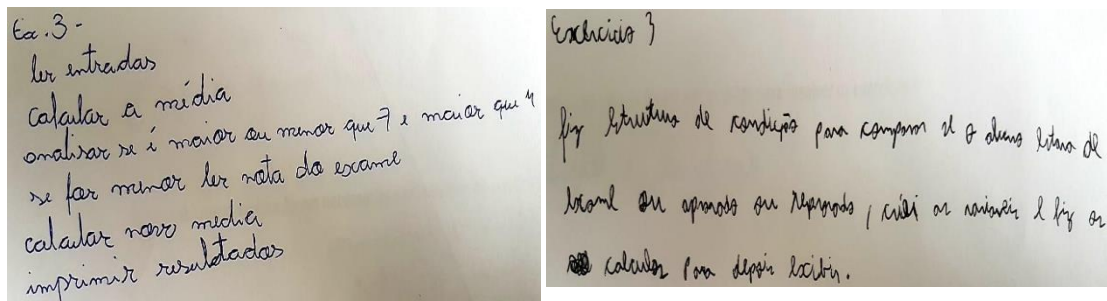 Ex. 3 -
ler entradas
calcular a média
analisar se é maior ou menor que 7 e maior que 4
se for menor ler nota do exame
calcular nova media
imprimir resultados
Exercicio 3
fiz estrutura de condição para comparar se o aluno estava de
exame ou aprovado ou reprovado, criei as variaveis e fiz os
calculos para depois exibir.